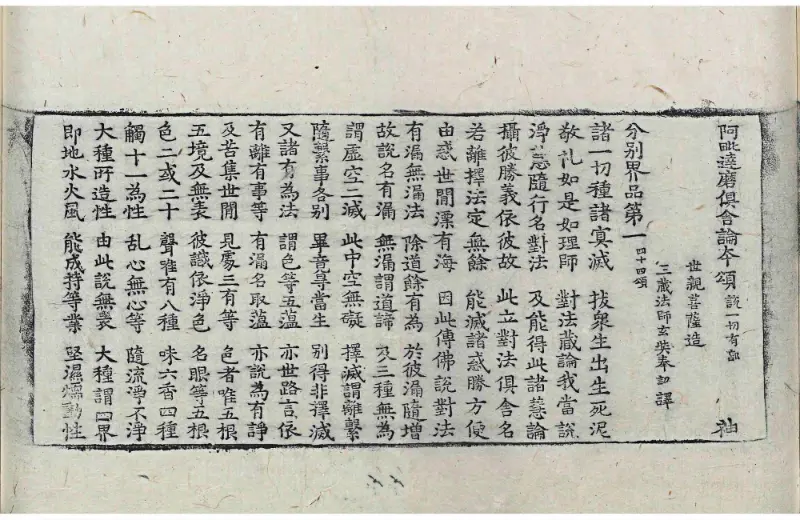 阿毗達磨俱舍論本頌 說一切有部 䄂
世親菩薩造
三藏法師玄奘奉詔譯
分別界品第一 四十四頌
諸一切種諸冥滅 拔衆生出生死泥
敬礼如是如理師 對法藏論我當說
淨慧隨行名對法 及能得此諸慧論
攝彼勝義依彼故 此立對法俱舍名
若離擇法定無餘 能滅諸惑勝方便
由惑世間漂有海 因此傳佛說對法
有漏無漏法 除道餘有為 於彼漏隨增
故說名有漏 無漏謂道諦 及三種無為
謂虛空二滅 此中空無礙 擇滅謂離繫
隨繫事各別 畢竟㝵當生 別得非擇滅
又諸有為法 謂色等五蕴 亦世路言依
有離有事等 有漏名取蕴 亦說為有諍
及苦集世間 見處三有等 色者唯五根
五境及無表 彼識依淨色 名眼等五根
色二或二十 聲唯有八種 味六香四種
觸十一為性 乱心無心等 隨流淨不淨
大種所造性 由此說無表 大種謂四界
即地水火風 能成持等業 堅濕煖動性